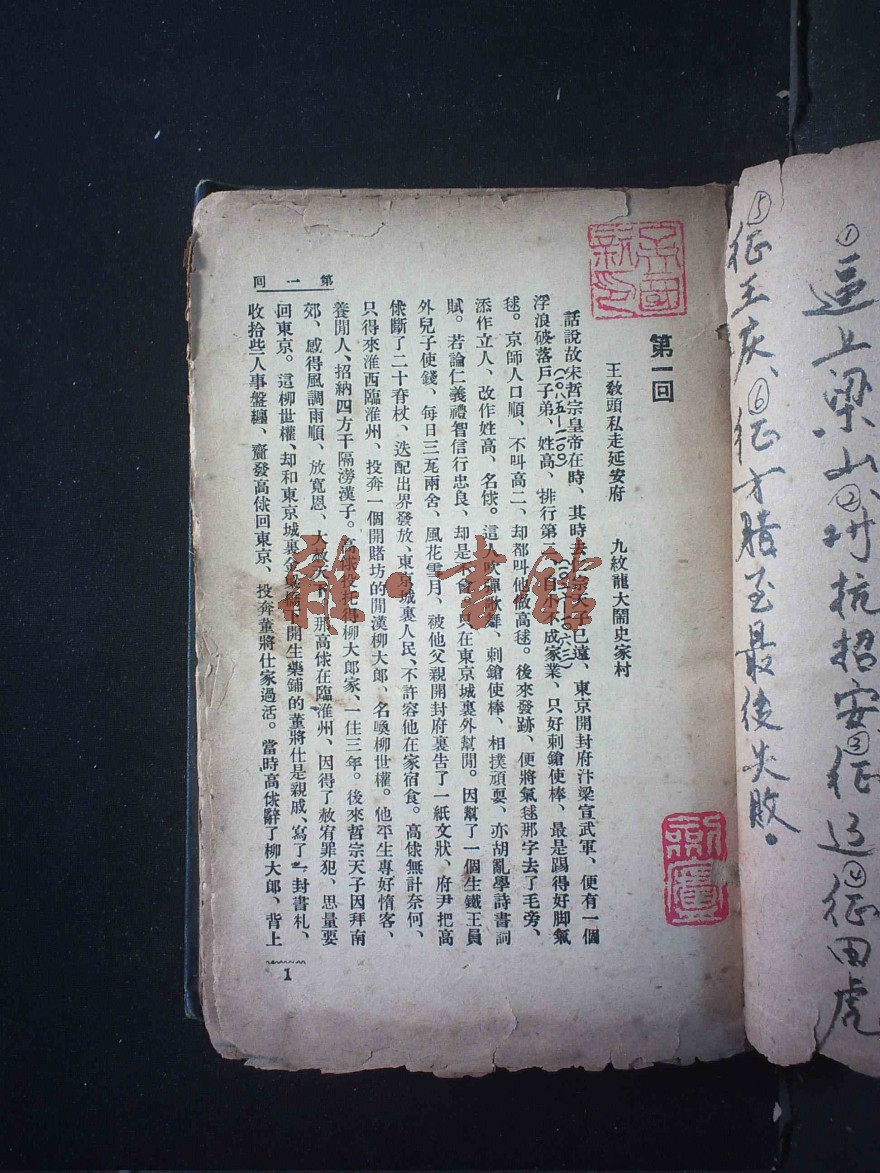 ①逼上梁山、②对抗招安③征辽④征田虎
⑤征王庆、⑥征方腊至最後失敗。
第一回
王敎頭私走延安府　九紋龍大鬧史家村
話說故宋哲宗皇帝在時、其時去仁宗天子已遠、東京開封府汴梁宣武軍、便有一個
浮浪破落戶子弟、姓高、排行第二、自小不成家業、只好刺鎗使棒、最是踢得好脚氣
毬。京師人口順、不叫高二、却都叫他做高毬。後來發跡、便將氣毬那字去了毛旁、
添作立人、改作姓高、名俅。這人吹彈歌舞、刺鎗使棒、相撲頑耍、亦胡亂學詩書詞
賦。若論仁義禮智信行忠良、却是不會、只在東京城裏城外幫閒。因幫了一個生鐵王員
外兒子使錢、每日三瓦兩舍、風花雪月、被他父親開封府裏告了一紙文狀、府尹把高
俅斷了二十脊杖、迭配出界發放、東京城裏人民、不許容他在家宿食。高俅無計奈何、
只得來淮西臨淮州、投奔一個開賭坊的閒漢柳大郎、名喚柳世權。他平生專好惜客、
養閒人、招納四方干隔澇漢子。高俅投托得柳大郎家、一住三年。後來哲宗天子因拜南
郊、感得風調雨順、放寬恩、大赦天下、那高俅在臨淮州、因得了赦宥罪犯、思量要
回東京。這柳世權、却和東京城裏金梁橋下開生藥鋪的董將仕是親戚、寫了一封書札、
收拾些人事盤纏、齎發高俅回東京、投奔董將仕家過活。當時高俅辭了柳大郎、背上
第一回
1
雜·書館